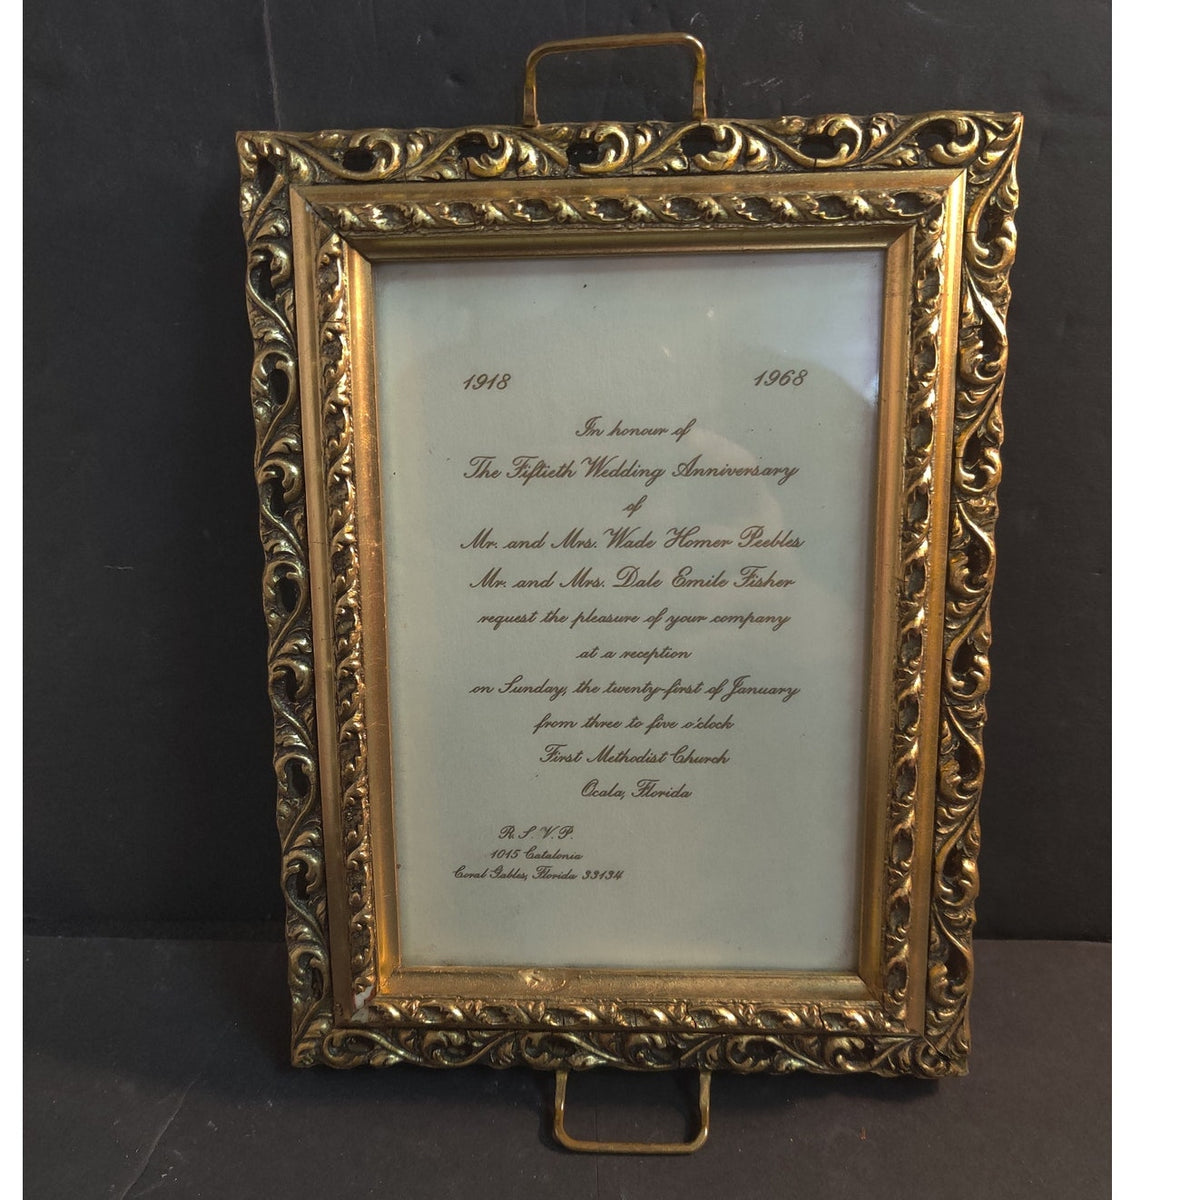 1918 1968
In honour of
The Fiftieth Wedding Anniversary
of
Mr. and Mrs. Wade Homer Peebles
Mr. and Mrs. Dale Emile Fisher
request the pleasure of your company
at a reception
on Sunday, the twenty-first of January
from three to five o'clock
First Methodist Church
Ocala, Florida
R. S. V. P.
1015 Catalonia
Coral Gables, Florida 33134